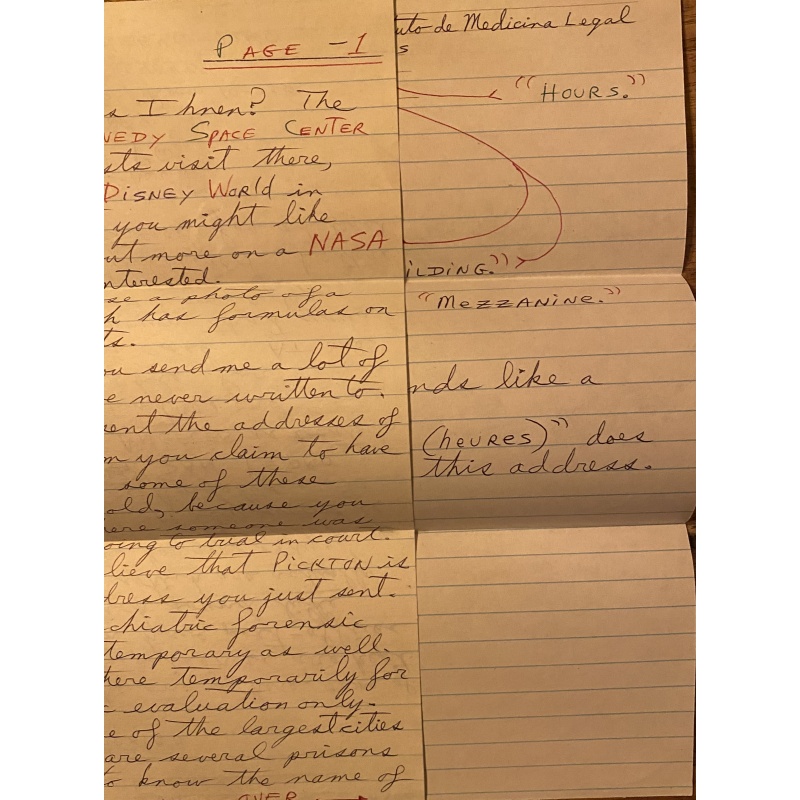 PAGE -1
s I hnen? The
NEDY SPACE CENTER
sts visit there,
DISNEY WORld in
you might like
ut more on a NASA
nterested.
se a photo of a
h has formulas on
ts.
ou send me a lot of
e never written to.
ent the addresses of
m you claim to have
some of these
old, because you
ere someone was
oing to trial in court.
lieve that PICKTON is
dress you just sent.
chiatric forensic
temporary as well.
here temporarily for
evaluation only.
e of the largest cities
are several prisons
o know the name of
OVER
uto de Medicina Legal
s
"HOURS."
iLDING."
"MEZZANINE."
nds like a
(heURES)" does
this address.